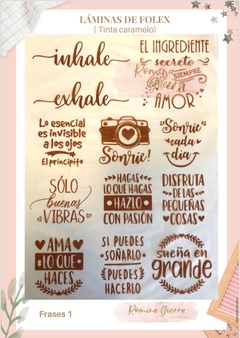 LÁMINAS DE FOLEX
( Tinta caramelo)
inhale
exhale
EL INGREDIENTE
secreto
SIEMPRE
AMOR
Lo esencial
es invisible
a los ojos
El principito
Sonríe!
Sonríe
cada
día
SÓLO
buenas
VIBRAS
HAGAS
LO QUE HAGAS
HAZLO
CON PASIÓN
DISFRUTA
DE LAS
PEQUEÑAS
COSAS
AMA
LO QUE
HACES
SI PUEDES
SOÑARLO
PUEDES
HACERLO
sueña en
grande
Frases 1
Romina Guerra